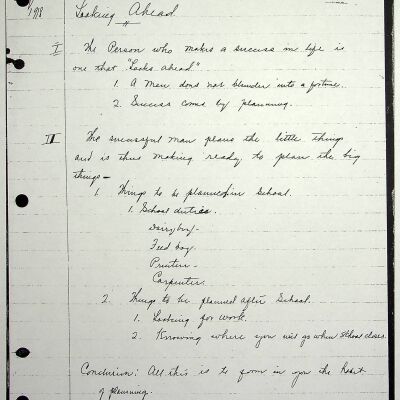 1918 Looking Ahead
I The Person who makes a success in life is
one that "Looks ahead"
1. A man does not blunder into a fortune.
2. Success comes by planning.
II The successful man plans the little things
and is thus making ready to plan the big
things -
1. Things to be planned for in School.
1. School duties.
Dairy boy -
Feed boy.
Printer -
Carpenter.
2. Things to be planned after School.
1. Looking for work.
2. Knowing where you will go when School closes.
Conclusion: All this is to form in you the heart
of planning.